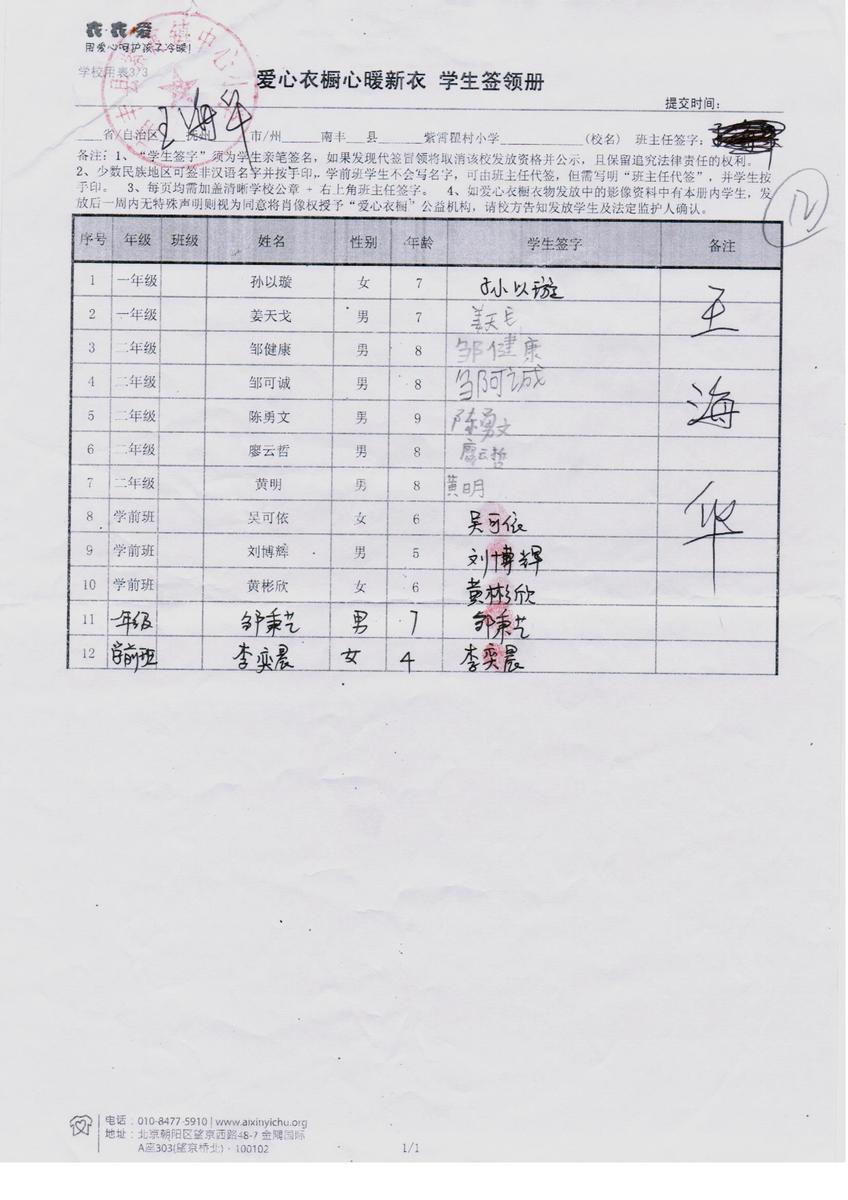 衣·衣·爱
用爱心呵护孩子冷暖!
学校用表3/3
爱心衣橱心暖新衣 学生签领册
提交时间:
王海华
省/自治区 抚州 市/州 南丰 县 紫霄瞿村小学 (校名) 班主任签字:
备注: 1、"学生签字"须为学生亲笔签名,如果发现代签冒领将取消该校发放资格并公示,且保留追究法律责任的权利。
2、少数民族地区可签非汉语名字并按手印,学前班学生不会写名字,可由班主任代签,但需写明"班主任代签",并学生按
手印。 3、每页均需加盖清晰学校公章 + 右上角班主任签字。 4、如爱心衣橱衣物发放中的影像资料中有本册内学生,发
放后一周内无特殊声明则视为同意将肖像权授予"爱心衣橱"公益机构,请校方告知发放学生及法定监护人确认。
12
序号 年级 班级 姓名 性别 年龄 学生签字 备注
1 一年级 孙以璇 女 7 孙以璇
2 一年级 姜天戈 男 7 姜天戈
3 二年级 邹健康 男 8 邹健康
4 二年级 邹可诚 男 8 邹阿诚
5 二年级 陈勇文 男 9 陈勇文
6 二年级 廖云哲 男 8 廖云哲
7 二年级 黄明 男 8 黄明
8 学前班 吴可依 女 6 吴可依
9 学前班 刘博辉 男 5 刘博辉
10 学前班 黄彬欣 女 6 黄彬欣
11 一年级 邹秉芸 男 7 邹秉芸
12 学前班 李奕晨 女 4 李奕晨
王
海
华
电话:010-8477-5910 | www.aixinyichu.org
地址:北京朝阳区望京西路48-7 金隅国际
A座303(望京桥北)·100102
1/1